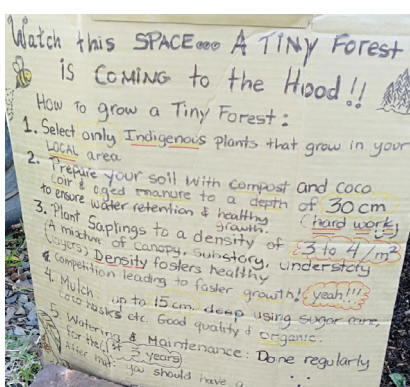 Watch this SPACE... A TINY Forest
is COMING to the Hood!!
How to grow a Tiny Forest:
1. Select only Indigenous plants that grow in your
LOCAL area
2. Prepare your soil with compost and coco
coir & aged manure to a depth of 30cm
to ensure water retention & healthy
growth. (hard work)
3. Plant Saplings to a density of 3 to 4/m²
(A mixture of canopy, substory, understory
layers) Density fosters healthy
& competition leading to faster growth! yeah!!!
4. Mulch up to 15cm deep using sugar cane,
Coco husks etc. Good quality & organic.
5. Watering & Maintenance: Done regularly
for the 1st 2 years
After that you should have a